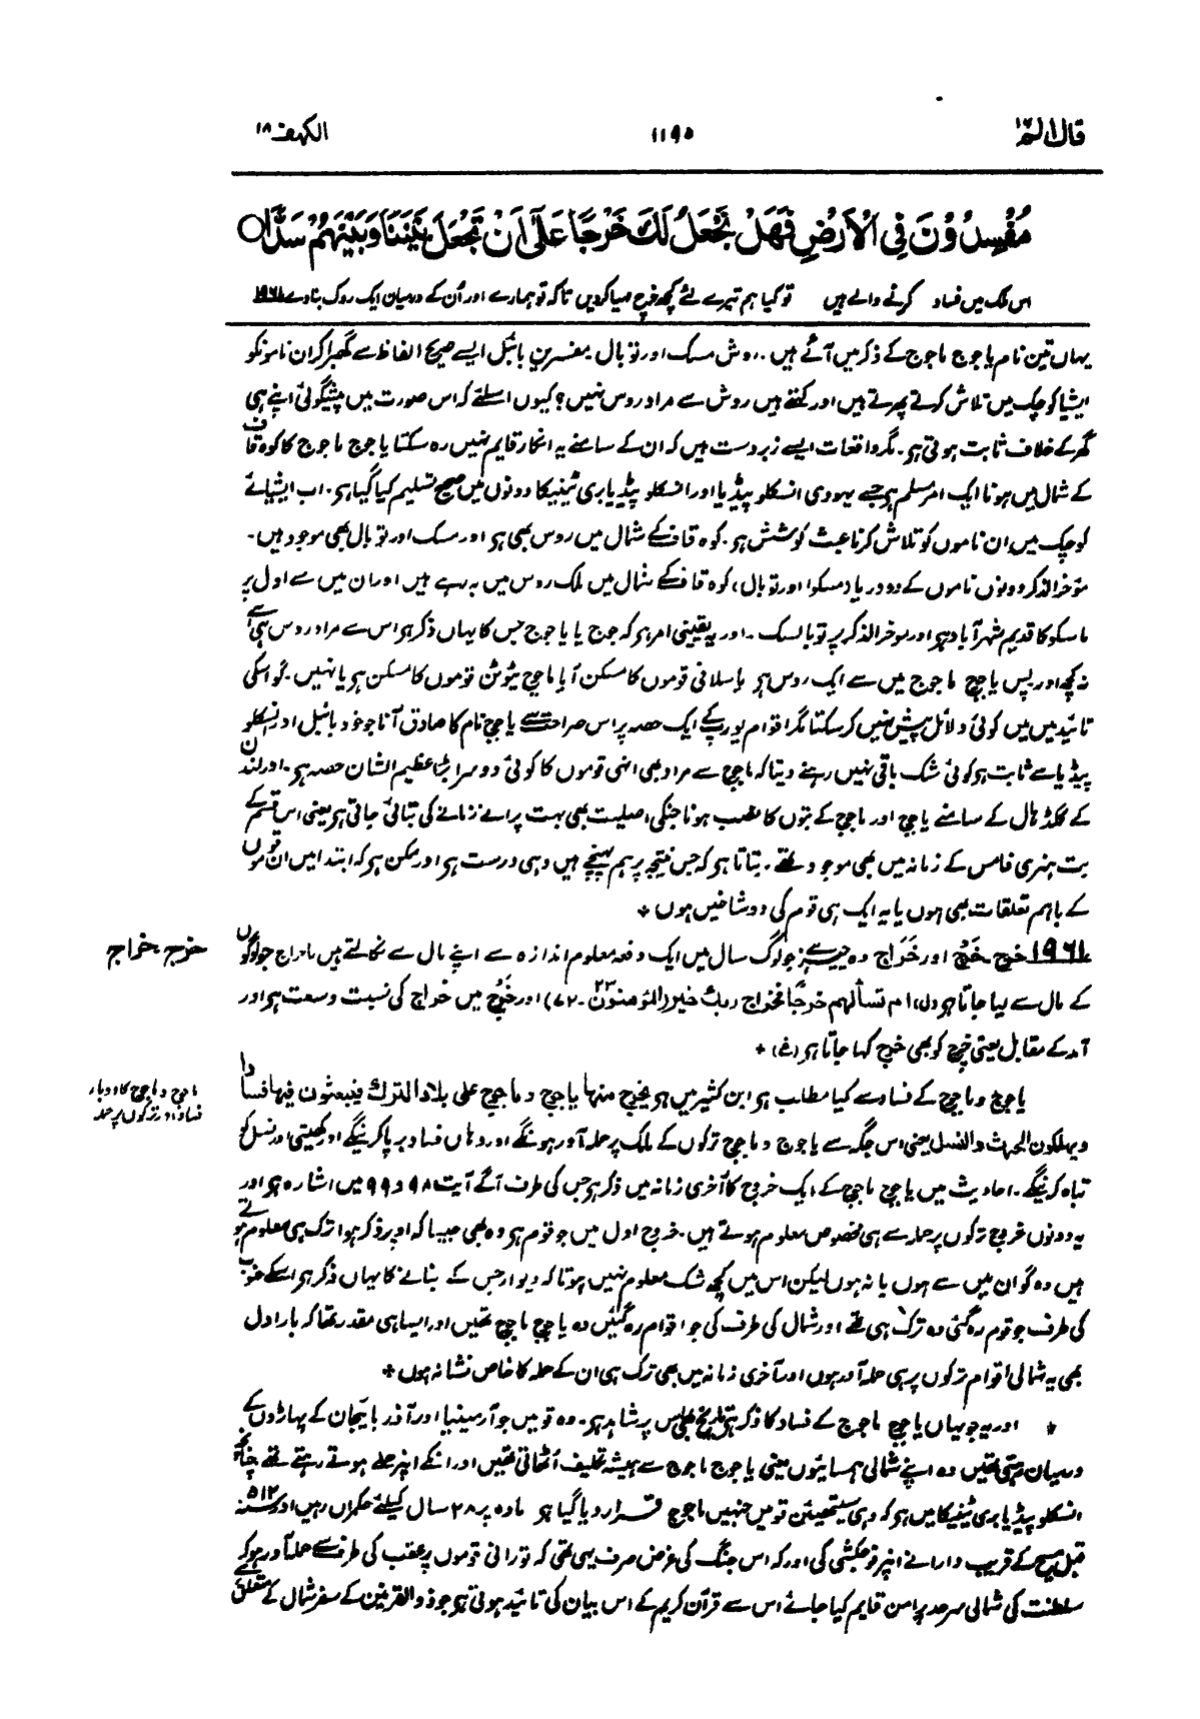 قال الم ١٦
١١٩٥
الکهف ١٨
مُفْسِدُوْنَ فِي الْاَرْضِ فَهَلْ نَجْعَلُ لَكَ خَرْجًا عَلٰٓى اَنْ تَجْعَلَ بَيْنَنَا وَبَيْنَهُمْ سَدًّا
اس ملک میں فساد کرنے والے ہیں تو کیا ہم تیرے لئے کچھ خرچ مہیا کردیں تاکہ تو ہمارے اور اُن کے درمیان ایک روک بنادے ١٩٦١
یہاں تین نام یاجوج ماجوج کے ذکر میں آئے ہیں۔ روش مسک اور توبال مفسرین بائبل ایسے صریح الفاظ سے گھبرا کر ان ناموں کو
ایشیا کوچک میں تلاش کرتے پھرتے ہیں اور کہتے ہیں روش سے مراد روس نہیں؟ کیوں اسلئے کہ اس صورت میں پیشگوئی اپنے ہی
گھر کے خلاف ثابت ہوتی ہو۔ مگر واقعات ایسے زبردست ہیں کہ ان کے سامنے یہ انکار قایم نہیں رہ سکتا یاجوج ماجوج کا کوہ قاف
کے شمال میں ہونا ایک امر مسلم ہو جسے یہودی انسکلوپیڈیا اور انسکلوپیڈیا بری ٹینیکا دونوں میں صحیح تسلیم کیا گیا ہو۔ اب ایشیائے
کوچک میں ان ناموں کو تلاش کرنا عبث کوشش ہو۔ کوہ قاف کے شمال میں روس بھی ہو اور مسک اور توبال بھی موجود ہیں۔
مؤخرالذکر دونوں ناموں کے دو دریا (مسکوا اور توبال) کوہ قاف کے شمال میں ملک روس میں بہ رہے ہیں اور ان میں سے اول پر
ماسکو کا قدیم شہر آباد ہو اور موخرالذکر پر توبالسک۔ اور یہ یقینی امر ہو کہ جوج یا یاجوج جس کا یہاں ذکر ہو اس سے مراد روس ہی ہے
نہ کچھ اور پس یاجوج ماجوج میں سے ایک روس ہو یا سلافی قوموں کا مسکن آیا ماجوج ٹیوٹن قوموں کا مسکن ہو یا نہیں۔ گو اسکی
تائید میں میں کوئی دلائل پیش نہیں کر سکتا مگر اقوام یورپ کے ایک حصہ پر اس صراحت سے یاجوج نام کا صادق آنا جو خود بائبل اور انسکلو
پیڈیا سے ثابت ہو کوئی شک باقی نہیں رہنے دیتا کہ ماجوج سے مراد بھی انہی قوموں کا کوئی دوسرا بڑا عظیم الشان حصہ ہو۔ اور لندن
کے گلڈ ہال کے سامنے یاجوج اور ماجوج کے بتوں کا نصب ہونا جنکی اصلیت بھی بہت پرانے زمانے کی بتائی جاتی ہو یعنی اس قسم کے
بت ہنری خامس کے زمانہ میں بھی موجود تھے۔ بتاتا ہو کہ جس نتیجہ پر ہم پہنچے ہیں وہی درست ہو اور ممکن ہو کہ ابتدا میں ان قوموں
کے باہم تعلقات بھی ہوں یا یہ ایک ہی قوم کی دو شاخیں ہوں +
١٩٦١ خرج۔ خَرْجٌ اور خَرَاج وہ چیز ہے جو لوگ سال میں ایک دفعہ معلوم اندازہ سے اپنے مال سے نکالتے ہیں یا خراج جو لوگوں
خرج۔ خراج
کے مال سے لیا جاتا ہو (ل) ام تسألهم خرجًا فخراج ربك خیر (المؤمنون ٢٣-٧٢) اور خَرْج میں خراج کی نسبت وسعت ہو اور
آمد کے مقابل یعنی خرچ کو بھی خرج کہا جاتا ہو (غ) +
یاجوج و ماجوج کے فساد سے کیا مطلب ہو ابن کثیر میں ہو یخرج منها یاجوج و ماجوج علی بلاد الترك فیبعثون فیها فسادا
یاجوج و ماجوج کا دوبارہ
فساد اور ترکوں پر حملہ
ویهلکون الحرث والنسل یعنی اس جگہ سے یاجوج و ماجوج ترکوں کے ملک پر حملہ آور ہونگے اور وہاں فساد برپا کرینگے اور کھیتی اور نسل کو
تباہ کرینگے۔ احادیث میں یاجوج ماجوج کے ایک خروج کا آخری زمانہ میں ذکر ہو جس کی طرف آگے آیت ٩٨ و ٩٩ میں اشارہ ہو اور
یہ دونوں خروج ترکوں پر حملہ سے ہی مخصوص معلوم ہوتے ہیں۔ خروج اول میں جو قوم ہو وہ بھی جیسا کہ اوپر ذکر ہوا ترک ہی معلوم ہوتے
ہیں وہ گو ان میں سے ہوں یا نہ ہوں لیکن اس میں کچھ شک معلوم نہیں ہوتا کہ دیوار جس کے بنانے کا یہاں ذکر ہو اسکے جنوب
کی طرف جو قوم رہ گئی وہ ترک ہی تھے اور شمال کی طرف کی جو اقوام رہ گئیں وہ یاجوج ماجوج تھیں اور ایسا ہی مقدر تھا کہ بار اول
بھی یہ شمالی اقوام ترکوں پر ہی حملہ آور ہوں اور آخری زمانہ میں بھی ترک ہی ان کے حملہ کا خاص نشانہ ہوں +
اور یہ جو یہاں یاجوج ماجوج کے فساد کا ذکر ہے تاریخ بھی اس پر شاہد ہو۔ وہ قومیں جو آرمینیا اور آذربایٔجان کے پہاڑوں کے
درمیان رہتی تھیں وہ اپنے شمالی ہمسائیوں یعنی یاجوج ماجوج سے ہمیشہ تکلیف اُٹھاتی تھیں اور انکے انپر حملے ہوتے رہتے تھے چنانچہ
انسکلوپیڈیا بری ٹینیکا میں ہو کہ وہی سیتھیئن قومیں جنہیں ماجوج قرار دیا گیا ہو مادہ پر ٢٨ سال کیلئے حکمراں رہیں اور سنہ ٥١٢
قبل مسیح کے قریب دارا نے انپر فوجکشی کی اور کہ اس جنگ کی غرض صرف یہی تھی کہ تورانی قوموں پر عقب کی طرف سے حملہ آور ہو کر
سلطنت کی شمالی سرحد پر امن قایم کیا جائے اس سے قرآن کریم کے اس بیان کی تائید ہوتی ہو جو ذوالقرنین کے سفر شمال کے متعلق ہے